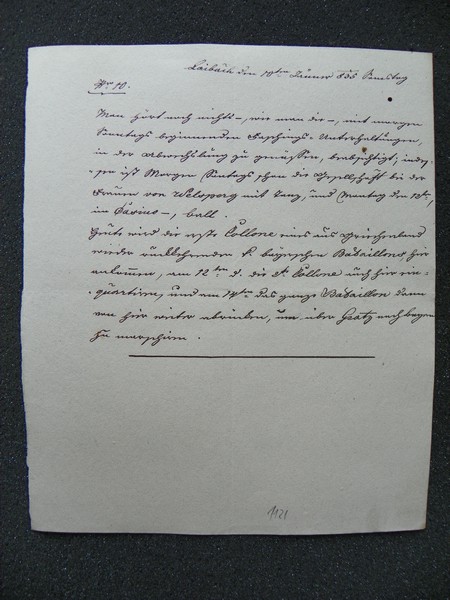 Laibach den 10ten Jänner 835 Samstag
Nr. 10.
Man hört noch nichts-, wie man die-, mit morgen
Sonntags beginnenden Faschings-Unterhaltungen,
in der Abwechslung zu genießen, beabsichtigt; indeß
ist Morgen Sontags schon die Gesellschaft bei der
Frauen von Welsperg mit Tanz, und Montag den 12ten,
im Casino-, ball.
Heute wird die erste Collone eines aus Griechenland
wieder rückkehrenden k. bayrischen Bataillons, hier
ankommen, am 12ten d. die 2t Collone auch hier ein-
quartiren, und am 14ten das ganze Bataillon dann
von hier weiter abrücken, um über Gratz nach bayern
zu marschiren.
1121